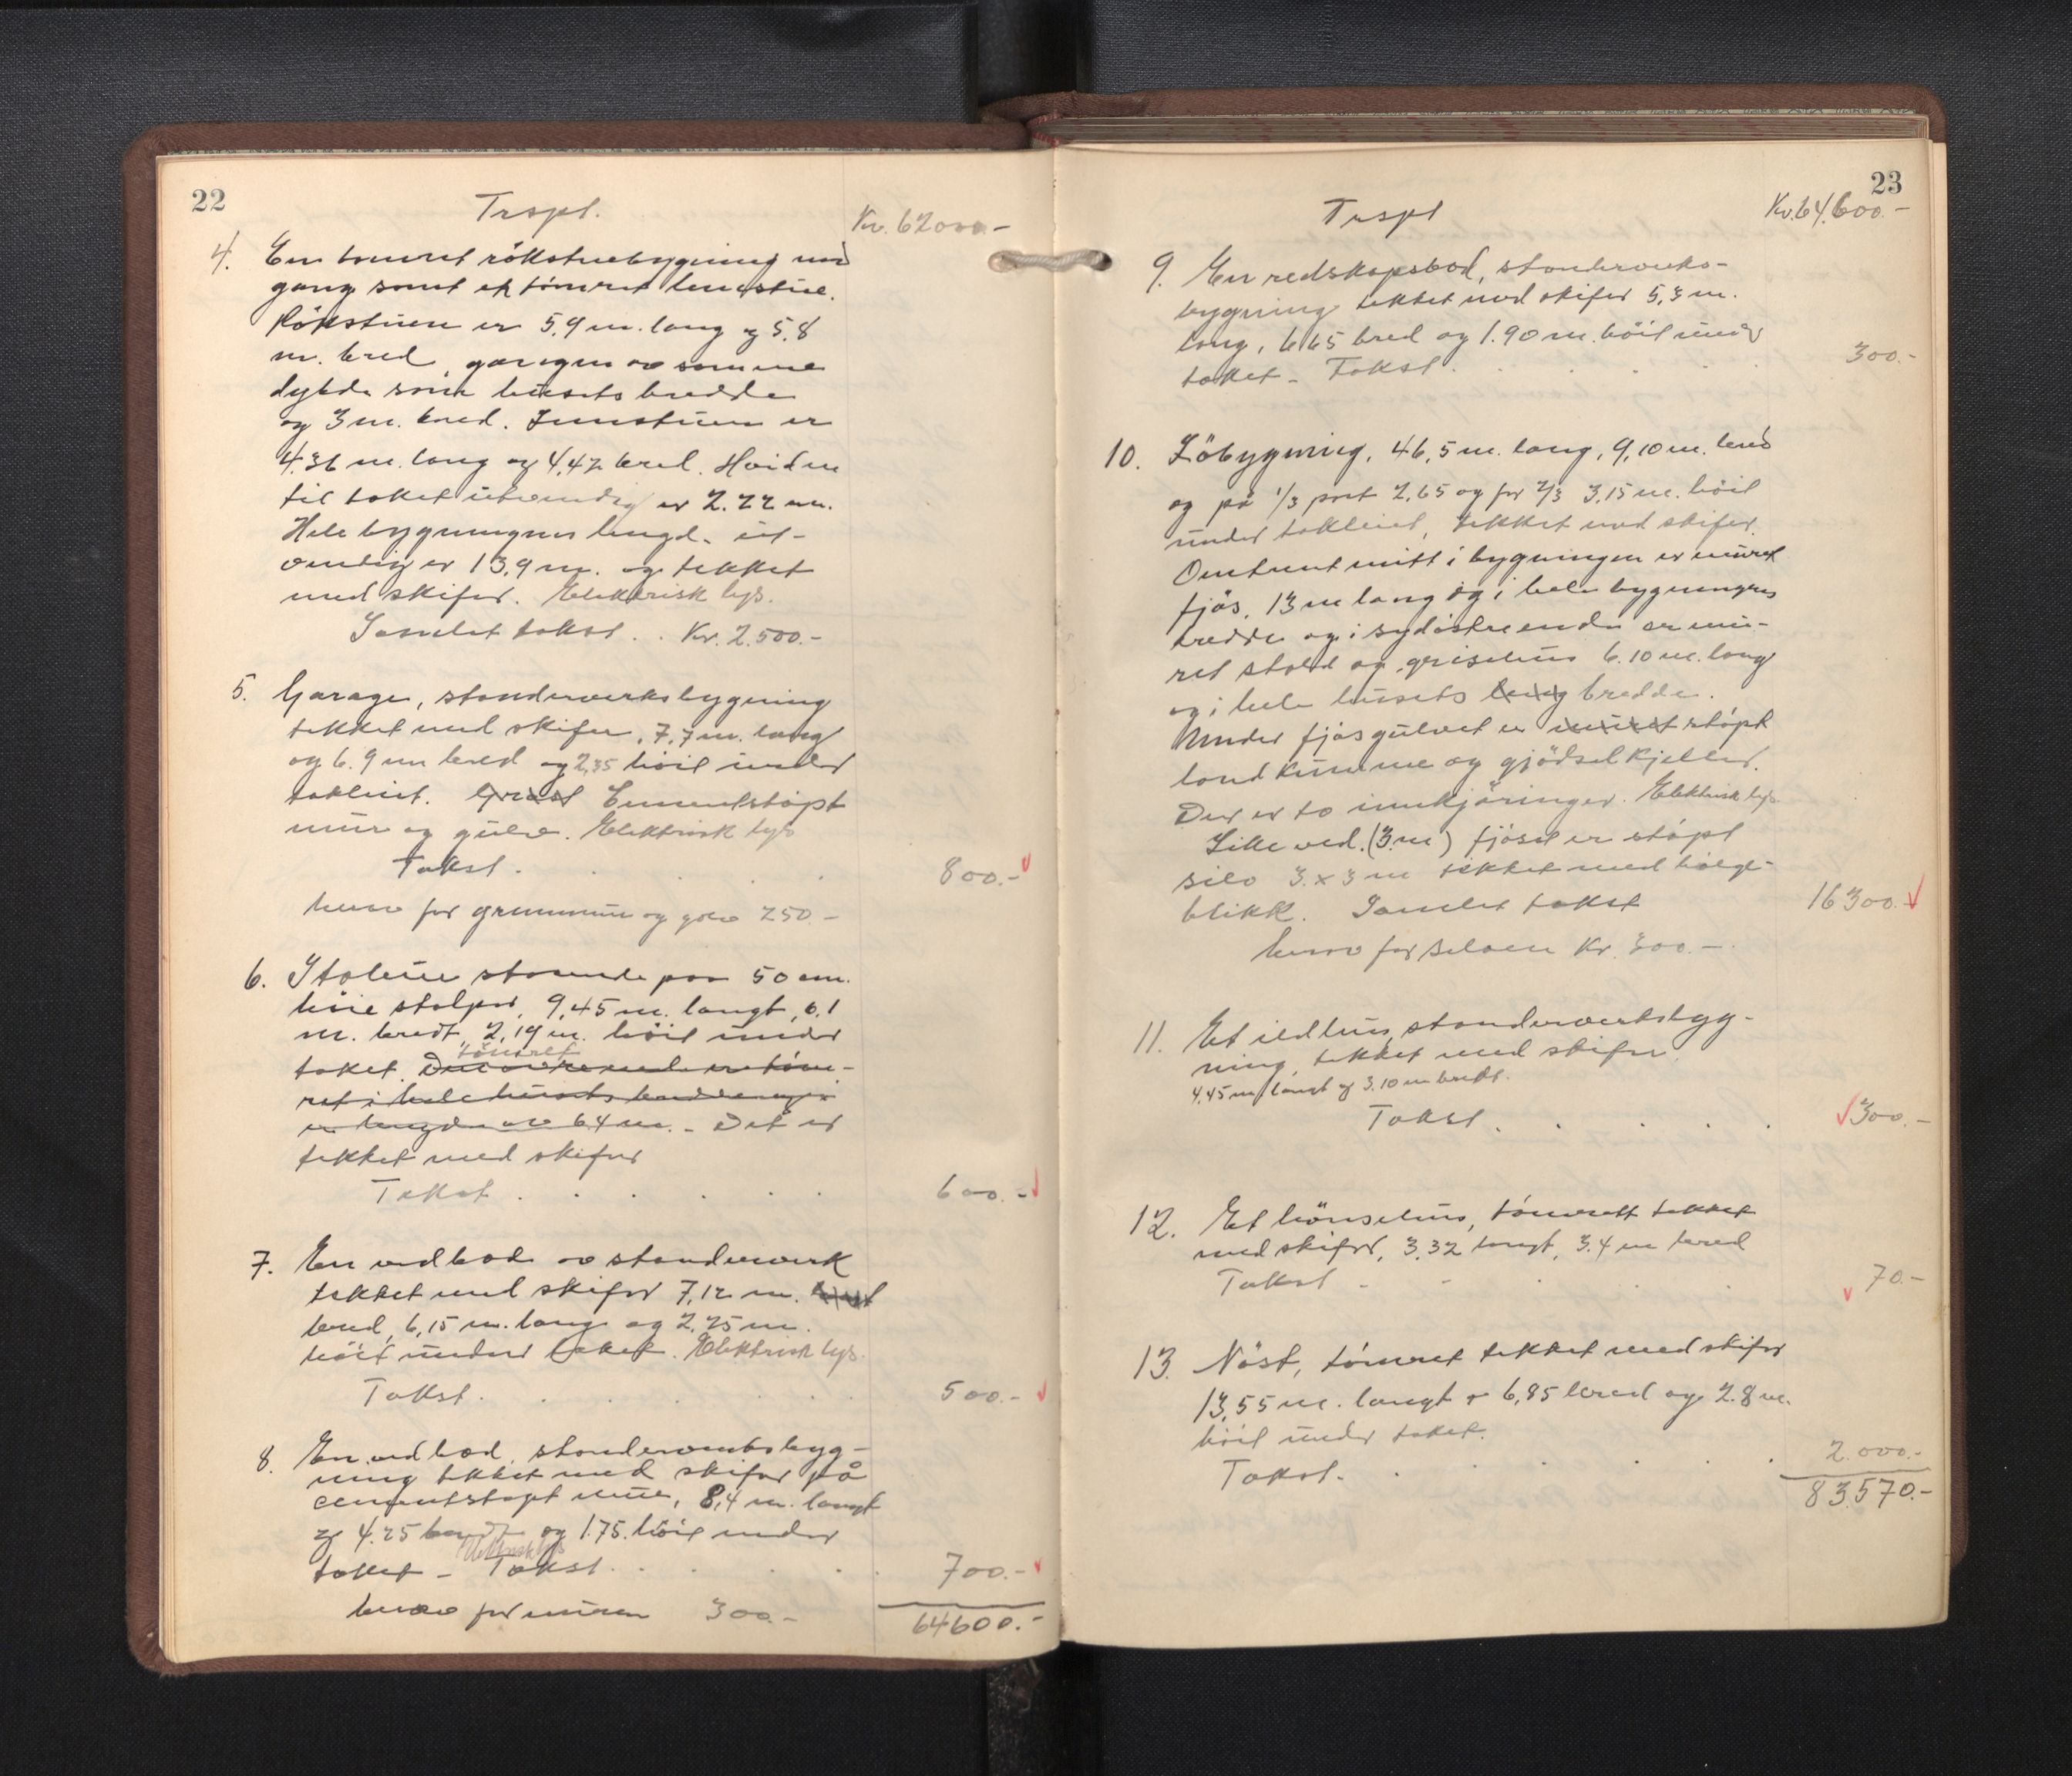 22
Trspt.
Kr. 62000.-
4. En tømret rökstuebygning med
gang samt et tömret lemstue.
Rökstuen er 5,9 m. lang og 5,8
m. bred, gangen av samme
dybde som husets bredde
og 3 m. bred. Lemstuen er
4,36 m. lang og 4,42 bred. Høiden
til taket utvendig er 2.22 m.
Hele bygningens lengde ut-
vendig er 13,9 m. og tekket
med skifer. Elektrisk lys.
Samlet takst . . Kr. 2.500.-
5. Garage, standerverksbygning
tekket med skifer, 7,7 m. lang
og 6.9 m bred og 2,35 höit under
takleiet. Grust Cementstøpt
mur og gulv. Elektrisk lys
Takst . . . . 800.-
herav for grunnmur og golv 250 -
6. Stabur stående paa 50 cm.
höie stolper, 9,45 m. langt, 6,1
m. bredt, 2,19 m. höit under
tømret
taket. Den övre ende er töm-
ret i hele husets bredde og i
en lengde av 6,4 m. - Det er
tekket med skifer
Takst . . . . . 600.-
7. En vedbod av standerverk
tekket med skifer 7,12 m. langt
bred, 6,15 m. lang og 2,25 m.
höit under taket. Elektrisk lys.
Takst. . . . . 500.-
8. En vedbod, standerverksbyg-
ning tekket med skifer på
cementstøpt mur, 8,4 m. langt
og 4.25 bredt og 1.75. höit under
Elektrisk lys
taket - Takst. . . . . 700.-
herav for muren 300.-
64600.-
23
Trspt
Kr. 64.600.-
9. En redskapsbod, standerverks-
bygning tekket med skifer 5,3 m.
lang, 6,65 bred og 1.90 m. höit under
taket - Takst. . . . . 300.-
10. Löbygning, 46,5 m. lang, 9,10 m. bred
og på 1/3 part 2,65 og for 2/3 3,15 m. höit
under takleiet, tekket med skifer.
Omtrent mitt i bygningen er muret
fjös, 13 m lang og i hele bygningens
bredde og i sydøstre ende er mu-
ret stald og grisehus 6.10 m. lang
og i hele husets leng bredde.
Under fjøsgulvet er muret stöpt
landkumme og gjødselkjeller.
Der er to innkjøringer. Elektrisk lys.
Like ved. (3 m) fjöset er stöpt
silo 3 x 3 m tekket med bølge-
blikk. Samlet takst 16300.-
herav for siloen Kr. 300.-
11. Et ildhus, standerverksbyg-
ning, tekket med skifer.
4,45 m langt og 3.10 m bredt.
Takst . . . . . 300.-
12. Et hönsehus, tömrett tekket
med skifer, 3.32 langt, 3.4 m bred
Takst - - . . . 70.-
13. Nöst, tömret tekket med skifer
13,55 m. langt + 6,85 bred og 2.8 m.
höit under taket.
Takst. . . . . . 2.000.-
83.570.-